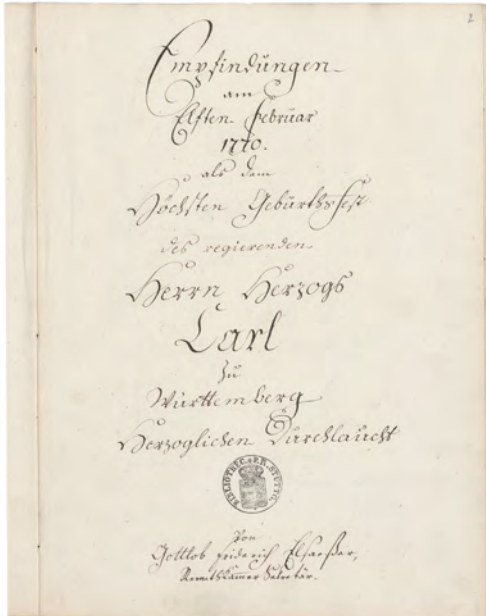 2
Empfindungen
am
Elften Februar
1770.
als dem
Höchsten Geburthsfest
des regierenden
Herrn Herzogs
Carl
zu
Württemberg
Herzoglichen Durchlaucht
BIBLIOTHEC. REG. STUTTG.
Von
Gottlob Friderich Elsaeßer,
Secretär.